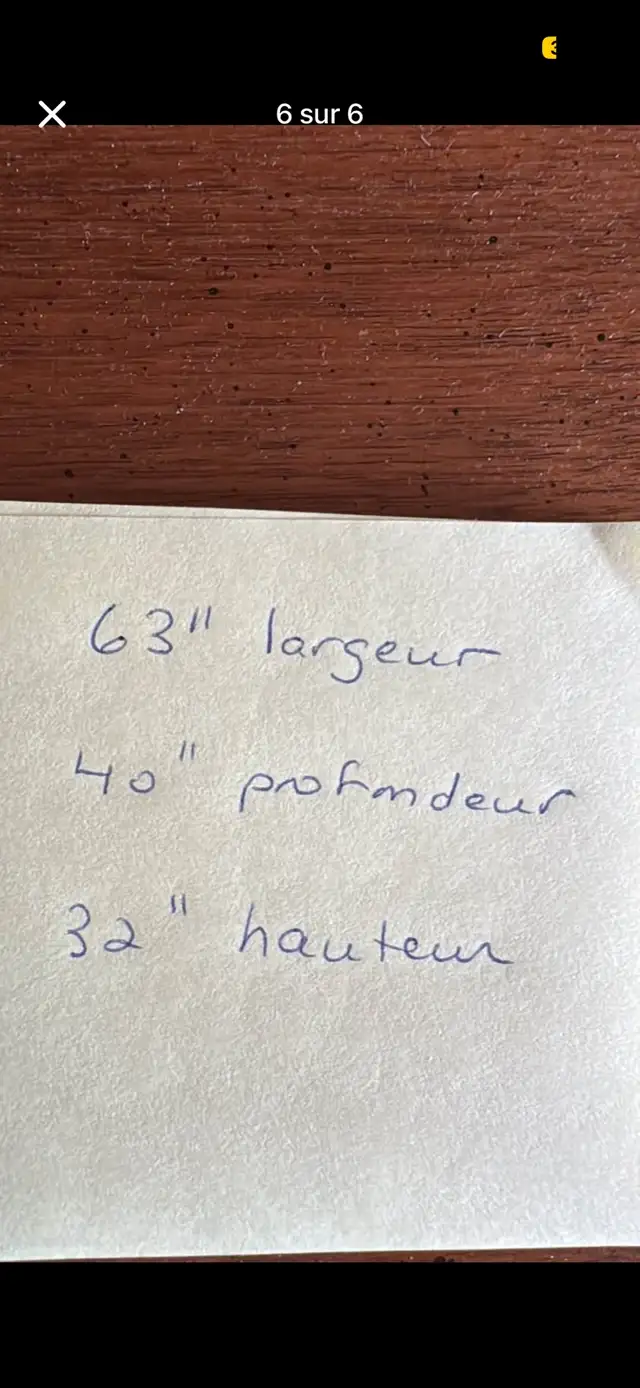 6 sur 6
63" largeur
40" profondeur
32" hauteur